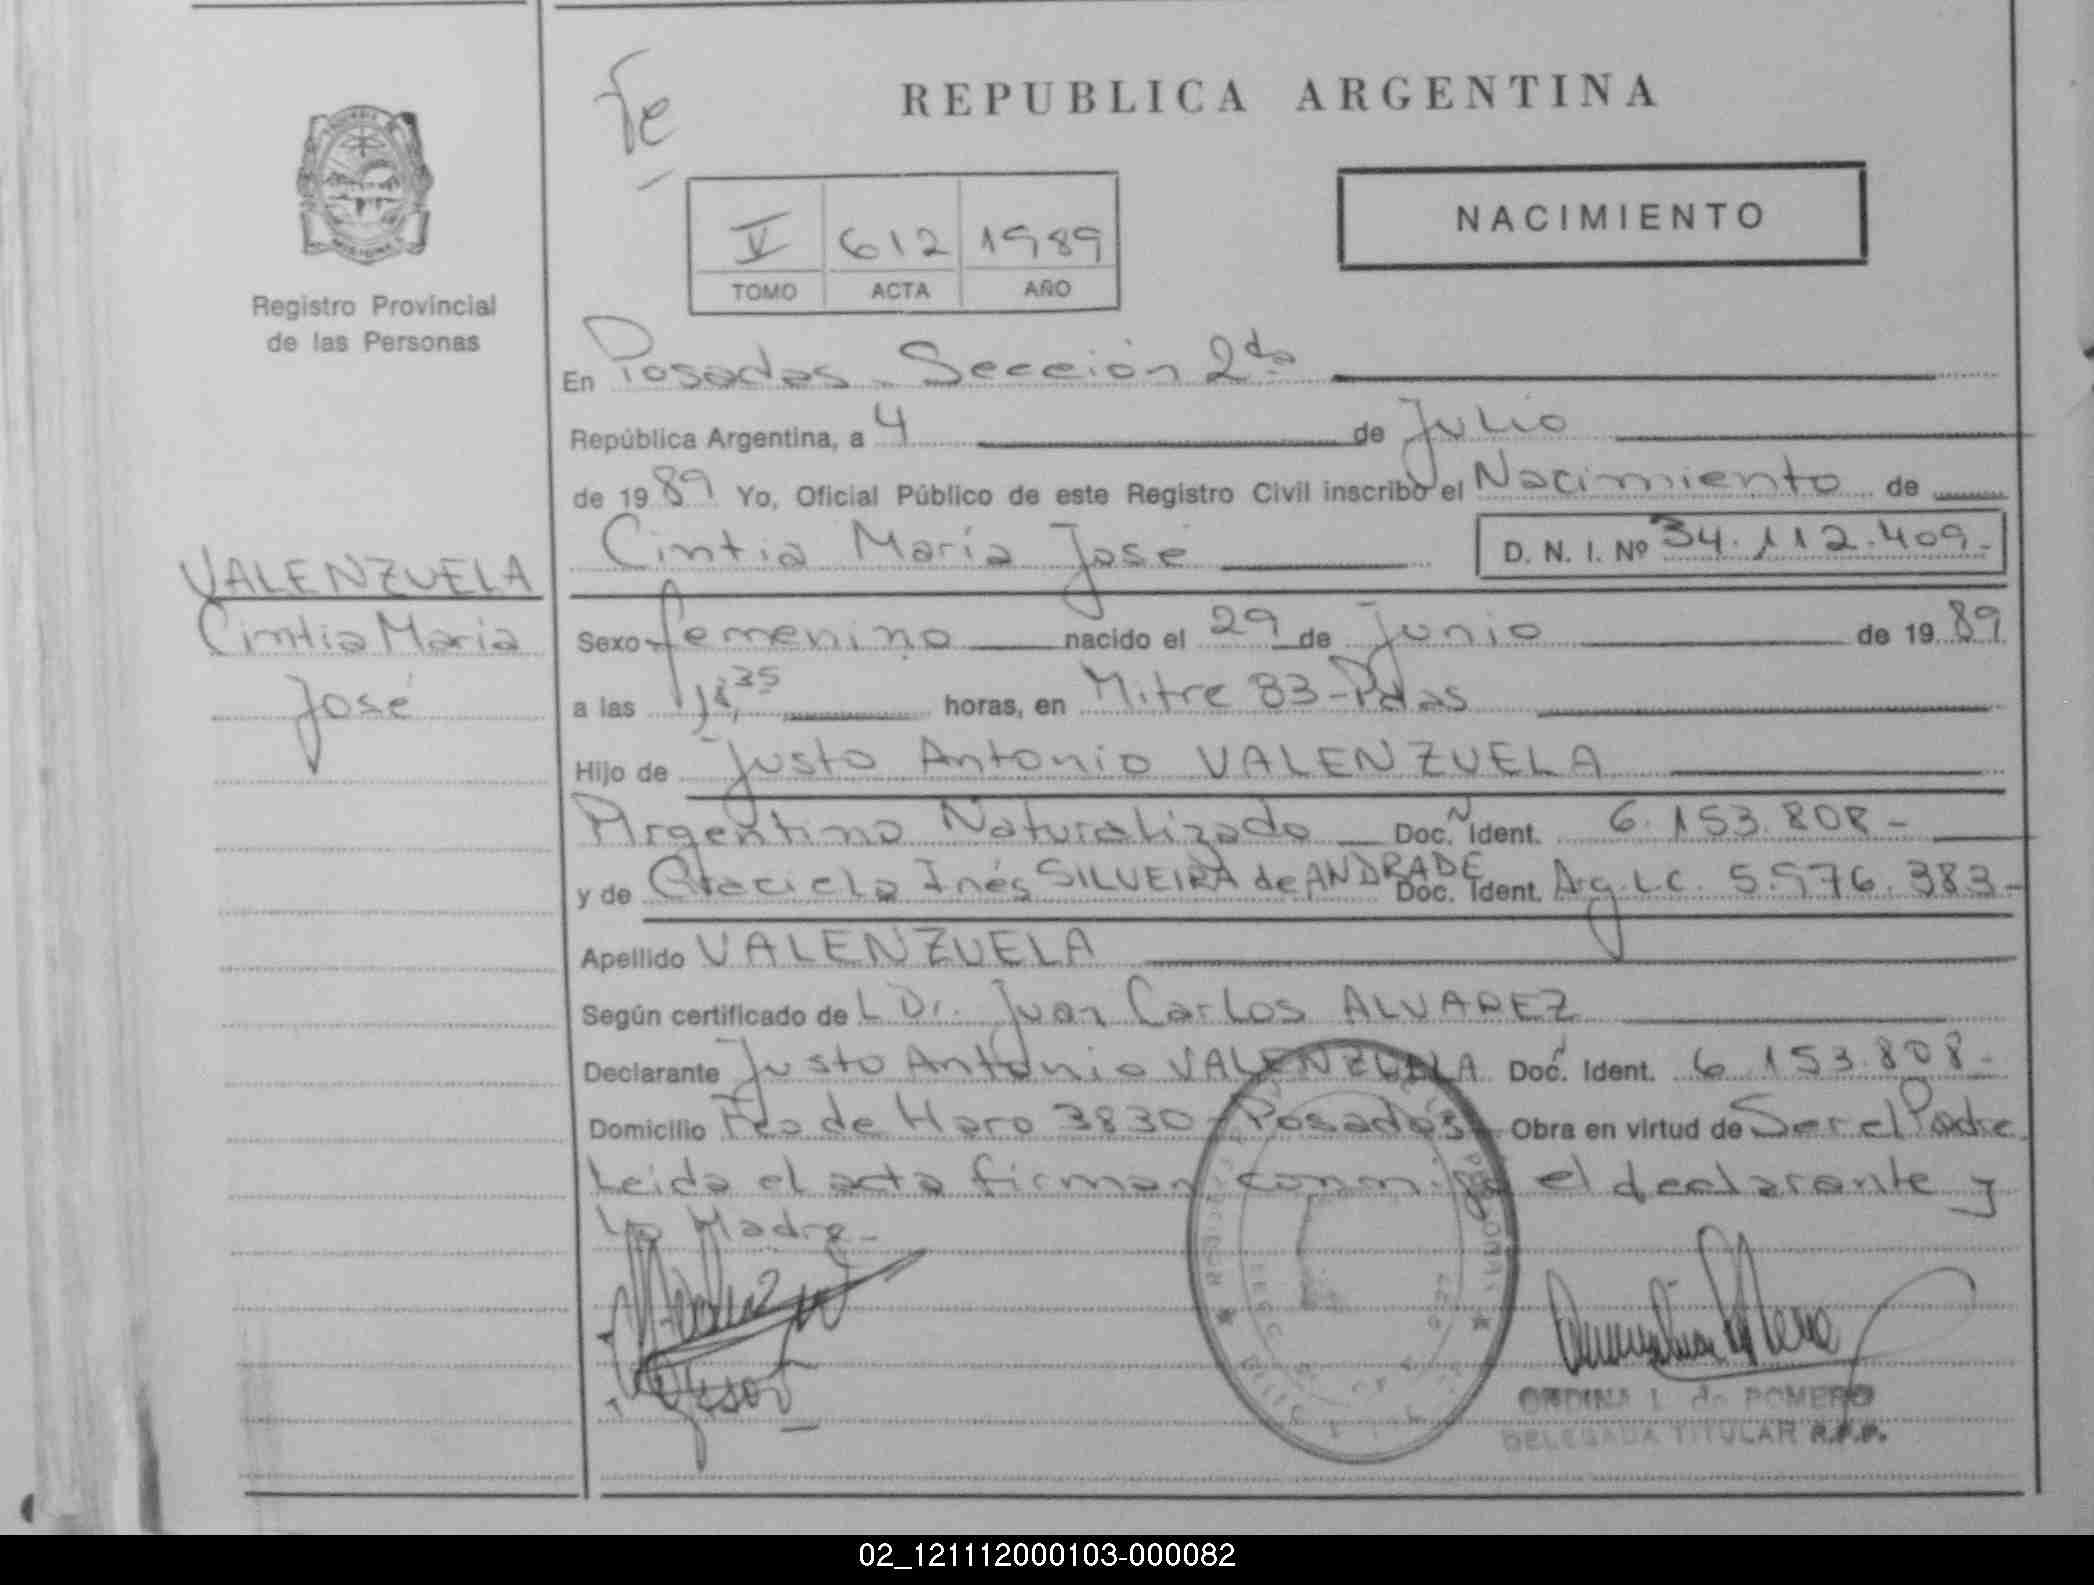 Fe
REPUBLICA ARGENTINA
V 612 1989
TOMO ACTA AÑO
NACIMIENTO
Registro Provincial
de las Personas
En Posadas - Sección 2da
República Argentina, a 4 de Julio
de 1989 Yo, Oficial Público de este Registro Civil inscribo el Nacimiento de
Cintia María José D. N. I. Nº 34.112.409.-
VALENZUELA
Cintia María
José
Sexo femenino nacido el 29 de Junio de 1989
a las 35 horas, en Mitre 83 - Pdas
Hijo de Justo Antonio VALENZUELA
Argentino Naturalizado Doc. Ident. 6.153.808-
y de Graciela Inés SILVEIRA de ANDRADE Doc. Ident. Arg. L.C. 5.576.383-
Apellido VALENZUELA
Según certificado de L Dr. Juan Carlos ALVAREZ
Declarante Justo Antonio VALENZUELA Doc. Ident. 6.153.808-
Domicilio Fco de Haro 3830 - Posadas Obra en virtud de Ser el Padre
Leida el acta firman conmigo el declarante y
La Madre-
L. de ROMERO
DELEGADA TITULAR R.P.P.
02_121112000103-000082